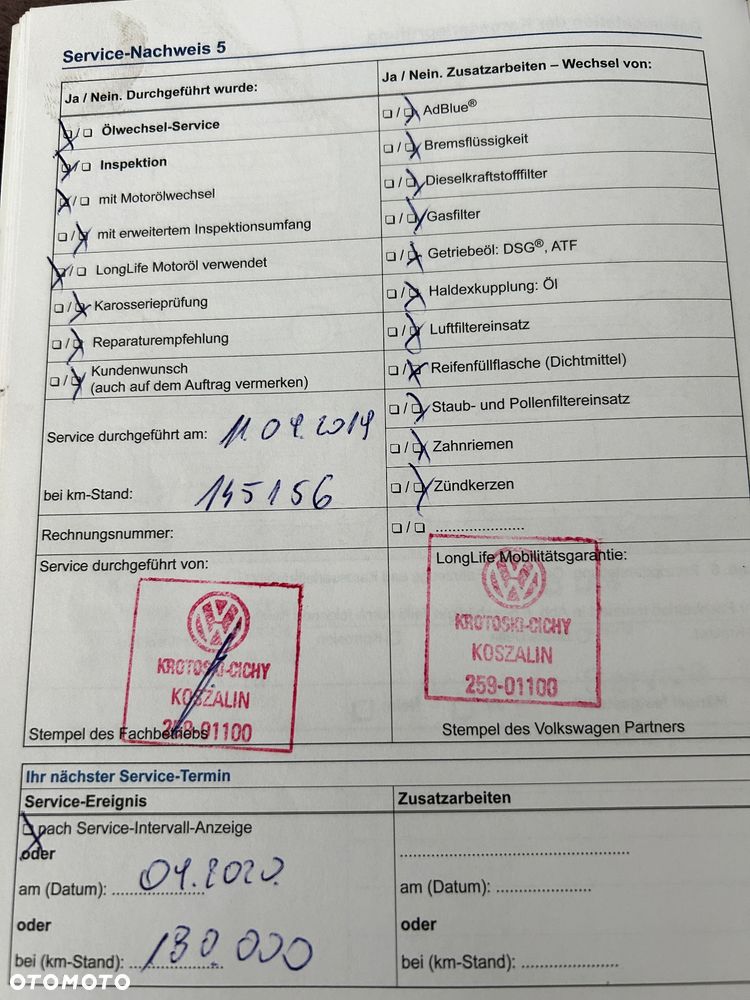 Service-Nachweis 5
Ja / Nein. Durchgeführt wurde:
Ölwechsel-Service
Inspektion
mit Motorölwechsel
mit erweitertem Inspektionsumfang
LongLife Motoröl verwendet
Karosserieprüfung
Reparaturempfehlung
Kundenwunsch
(auch auf dem Auftrag vermerken)
Service durchgeführt am: 11.04.2019
bei km-Stand: 145156
Rechnungsnummer:
Ja / Nein. Zusatzarbeiten – Wechsel von:
AdBlue®
Bremsflüssigkeit
Dieselkraftstofffilter
Gasfilter
Getriebeöl: DSG®, ATF
Haldexkupplung: Öl
Luftfiltereinsatz
Reifenfüllflasche (Dichtmittel)
Staub- und Pollenfiltereinsatz
Zahnriemen
Zündkerzen
......................
Service durchgeführt von:
KROTOSKI-CICHY
KOSZALIN
259-01100
Stempel des Fachbetriebs
LongLife Mobilitätsgarantie:
KROTOSKI-CICHY
KOSZALIN
259-01100
Stempel des Volkswagen Partners
Ihr nächster Service-Termin
Service-Ereignis
nach Service-Intervall-Anzeige
oder
am (Datum): 04.2020.
oder
bei (km-Stand): 130.000
Zusatzarbeiten
......................
am (Datum): ......................
oder
bei (km-Stand): ......................
OTOMOTO